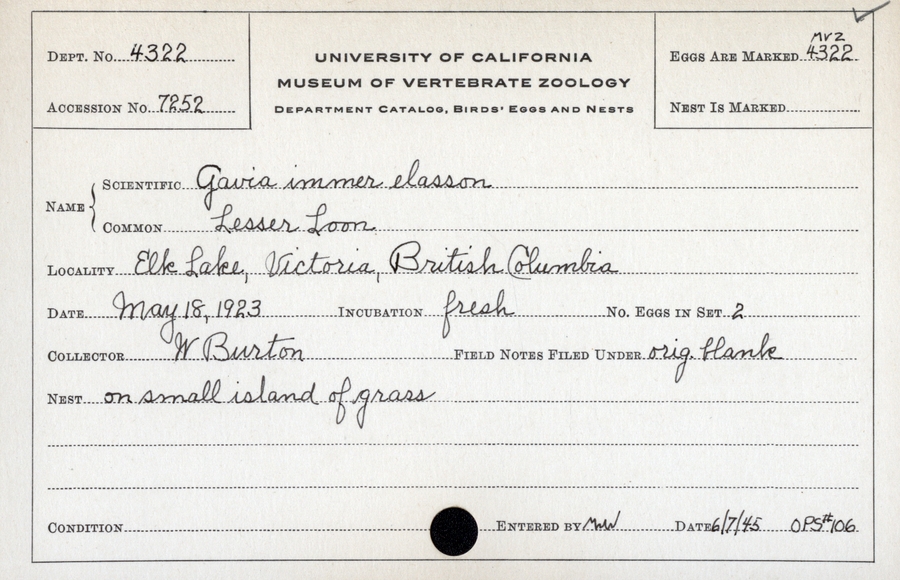 MVZ
DEPT. No. 4322 UNIVERSITY OF CALIFORNIA EGGS ARE MARKED 4322
MUSEUM OF VERTEBRATE ZOOLOGY
ACCESSION No. 7252 DEPARTMENT CATALOG, BIRDS' EGGS AND NESTS NEST IS MARKED
NAME { SCIENTIFIC Gavia immer elasson
COMMON Lesser Loon
LOCALITY Elk Lake, Victoria, British Columbia
DATE May 18, 1923 INCUBATION fresh No. EGGS IN SET 2
COLLECTOR W Burton FIELD NOTES FILED UNDER orig. blank
NEST on small island of grass
CONDITION ENTERED BY DATE 6/7/45 OPS#106